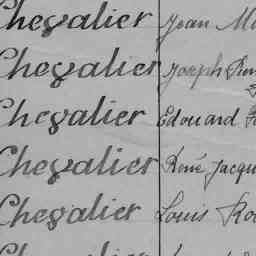 Chevalier Jean
Chevalier Joseph
Chevalier Edouard
Chevalier René Jacqu
Chevalier Louis
Chevalier